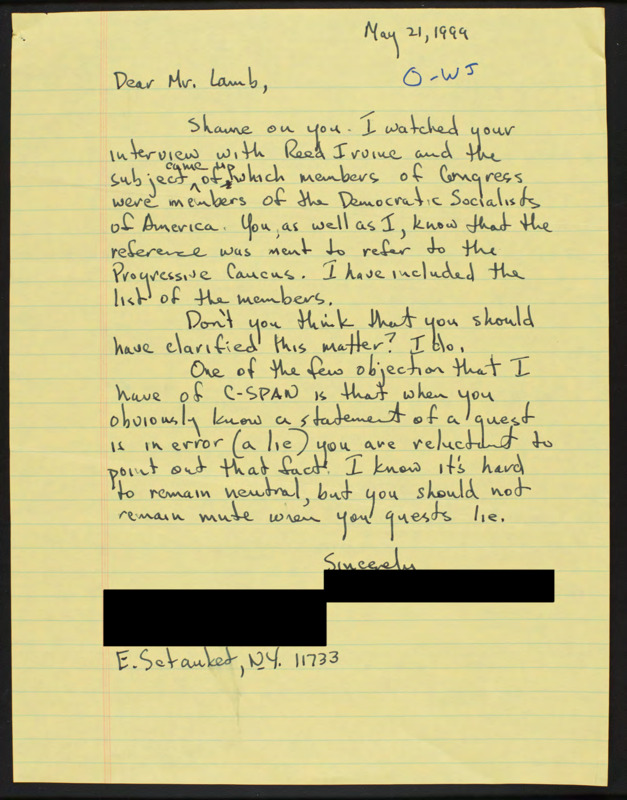 May 21, 1999
O-WJ
Dear Mr. Lamb,
Shame on you. I watched your
interview with Reed Irvine and the
subject came up of, which members of Congress
were members of the Democratic Socialists
of America. You, as well as I, know that the
reference was ment to refer to the
Progressive Caucus. I have included the
list of the members.
Don't you think that you should
have clarified this matter? I do.
One of the few objection that I
have of C-SPAN is that when you
obviously know a statement of a guest
is in error (a lie) you are reluctant to
point out that fact. I know it's hard
to remain neutral, but you should not
remain mute when you guests lie.
Sincerely
E. Setauket, N.Y. 11733